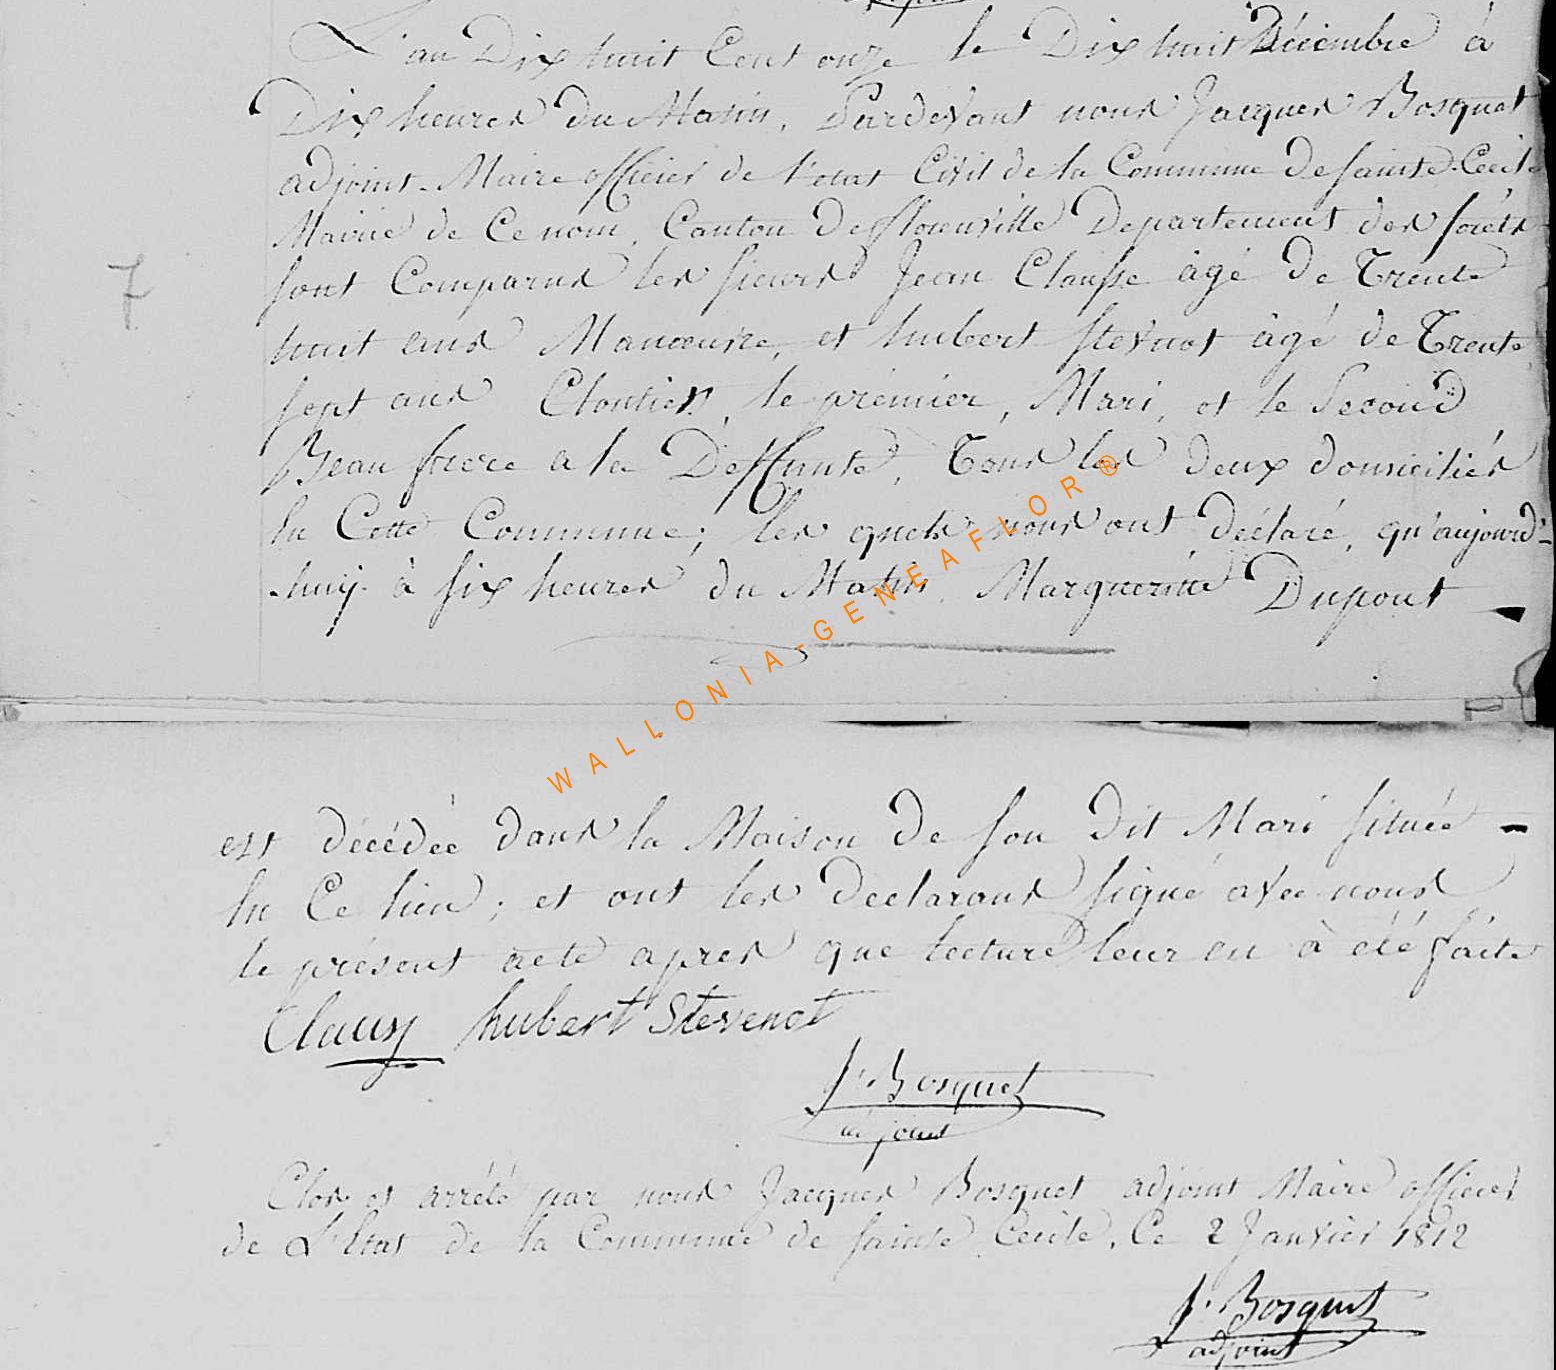 L'an Dix huit Cent onze le Dix huit Décembre à
Dix heures du Matin, Pardevant nous Jacques Bosquet
adjoint-Maire officier de l'etat Civil de la Commune de sainte-Cecile
Mairie de Ce nom, Canton de florenville Departement des forêts
sont Comparus les sieurs Jean Clausse âgé de Trente
huit ans Manœuvre, et hubert stevnot âgé de Trente
7
sept ans Cloutier, le premier, Mari, et le Second
Beau frere a la Deffunte, Tous les deux domiciliés
En Cette Commune; les quels nous ont déclaré, qu'aujourd'-
-huy à six heures du Matin, Marguerite Dupont
WALLONIA-GENEAFLOR®
est décédée dans la Maison de son dit Mari située
En Ce lieu; et ont les declarans signé avec nous
le présent acte apres que lecture leur en à été faite
Clausse hubert Stevenot
J. Bosquet
adjoint
Clos et arrêté par nous Jacques Bosquet adjoint Maire officier
de L'Etat de la Commune de sainte Cecile, Ce 2 Janvier 1812
J. Bosquet
adjoint